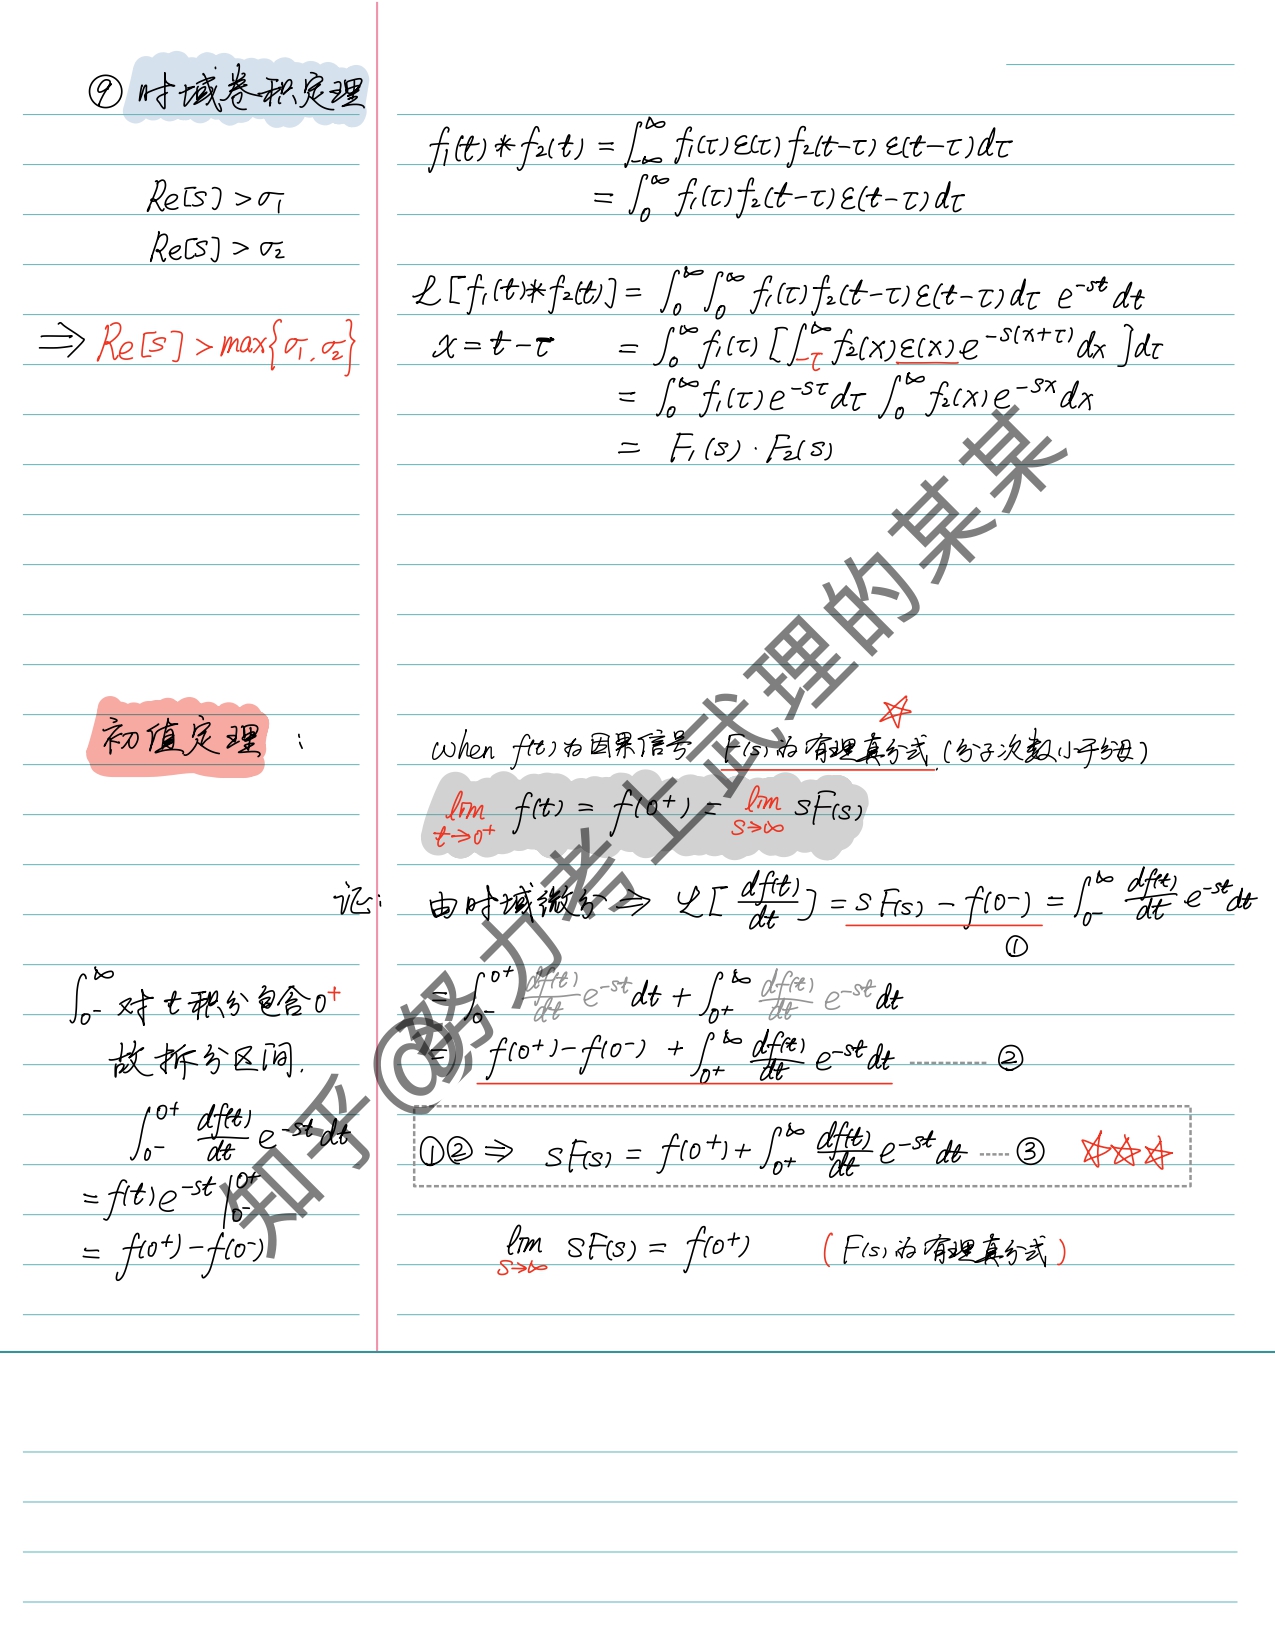 ⑨ 时域卷积定理
f₁(t) * f₂(t) = ∫_{-∞}^{∞} f₁(τ) ε(τ) f₂(t-τ) ε(t-τ) dτ
Re[s] > σ₁
= ∫_0^∞ f₁(τ) f₂(t-τ) ε(t-τ) dτ
Re[s] > σ₂
ℒ[f₁(t)*f₂(t)] = ∫_0^∞ ∫_0^∞ f₁(τ) f₂(t-τ) ε(t-τ) dτ e^{-st} dt
⇒ Re[s] > max{σ₁, σ₂}
x = t-τ = ∫_0^∞ f₁(τ) [∫_{-τ}^∞ f₂(x) ε(x) e^{-s(x+τ)} dx] dτ
= ∫_0^∞ f₁(τ) e^{-sτ} dτ ∫_0^∞ f₂(x) e^{-sx} dx
= F₁(s) · F₂(s)
初值定理：
when f(t) 为因果信号 F(s) 为有理真分式 (分子次数小于分母)
lim_{t→0⁺} f(t) = f(0⁺) = lim_{s→∞} sF(s)
证: 由时域微分 ⇒ ℒ[df(t)/dt] = sF(s) - f(0⁻) = ∫_{0⁻}^∞ df(t)/dt e^{-st} dt
①
∫_{0⁻}^∞ 对 t 积分包含 0⁺
故拆分区间.
= ∫_{0⁻}^{0⁺} df(t)/dt e^{-st} dt + ∫_{0⁺}^∞ df(t)/dt e^{-st} dt
= f(0⁺) - f(0⁻) + ∫_{0⁺}^∞ df(t)/dt e^{-st} dt ········ ②
∫_{0⁻}^{0⁺} df(t)/dt e^{-st} dt
= f(t) e^{-st} |_{0⁻}^{0⁺}
= f(0⁺) - f(0⁻)
①② ⇒ sF(s) = f(0⁺) + ∫_{0⁺}^∞ df(t)/dt e^{-st} dt ···· ③
lim_{s→∞} sF(s) = f(0⁺) (F(s) 为有理真分式)
知乎@努力考上武理的某某